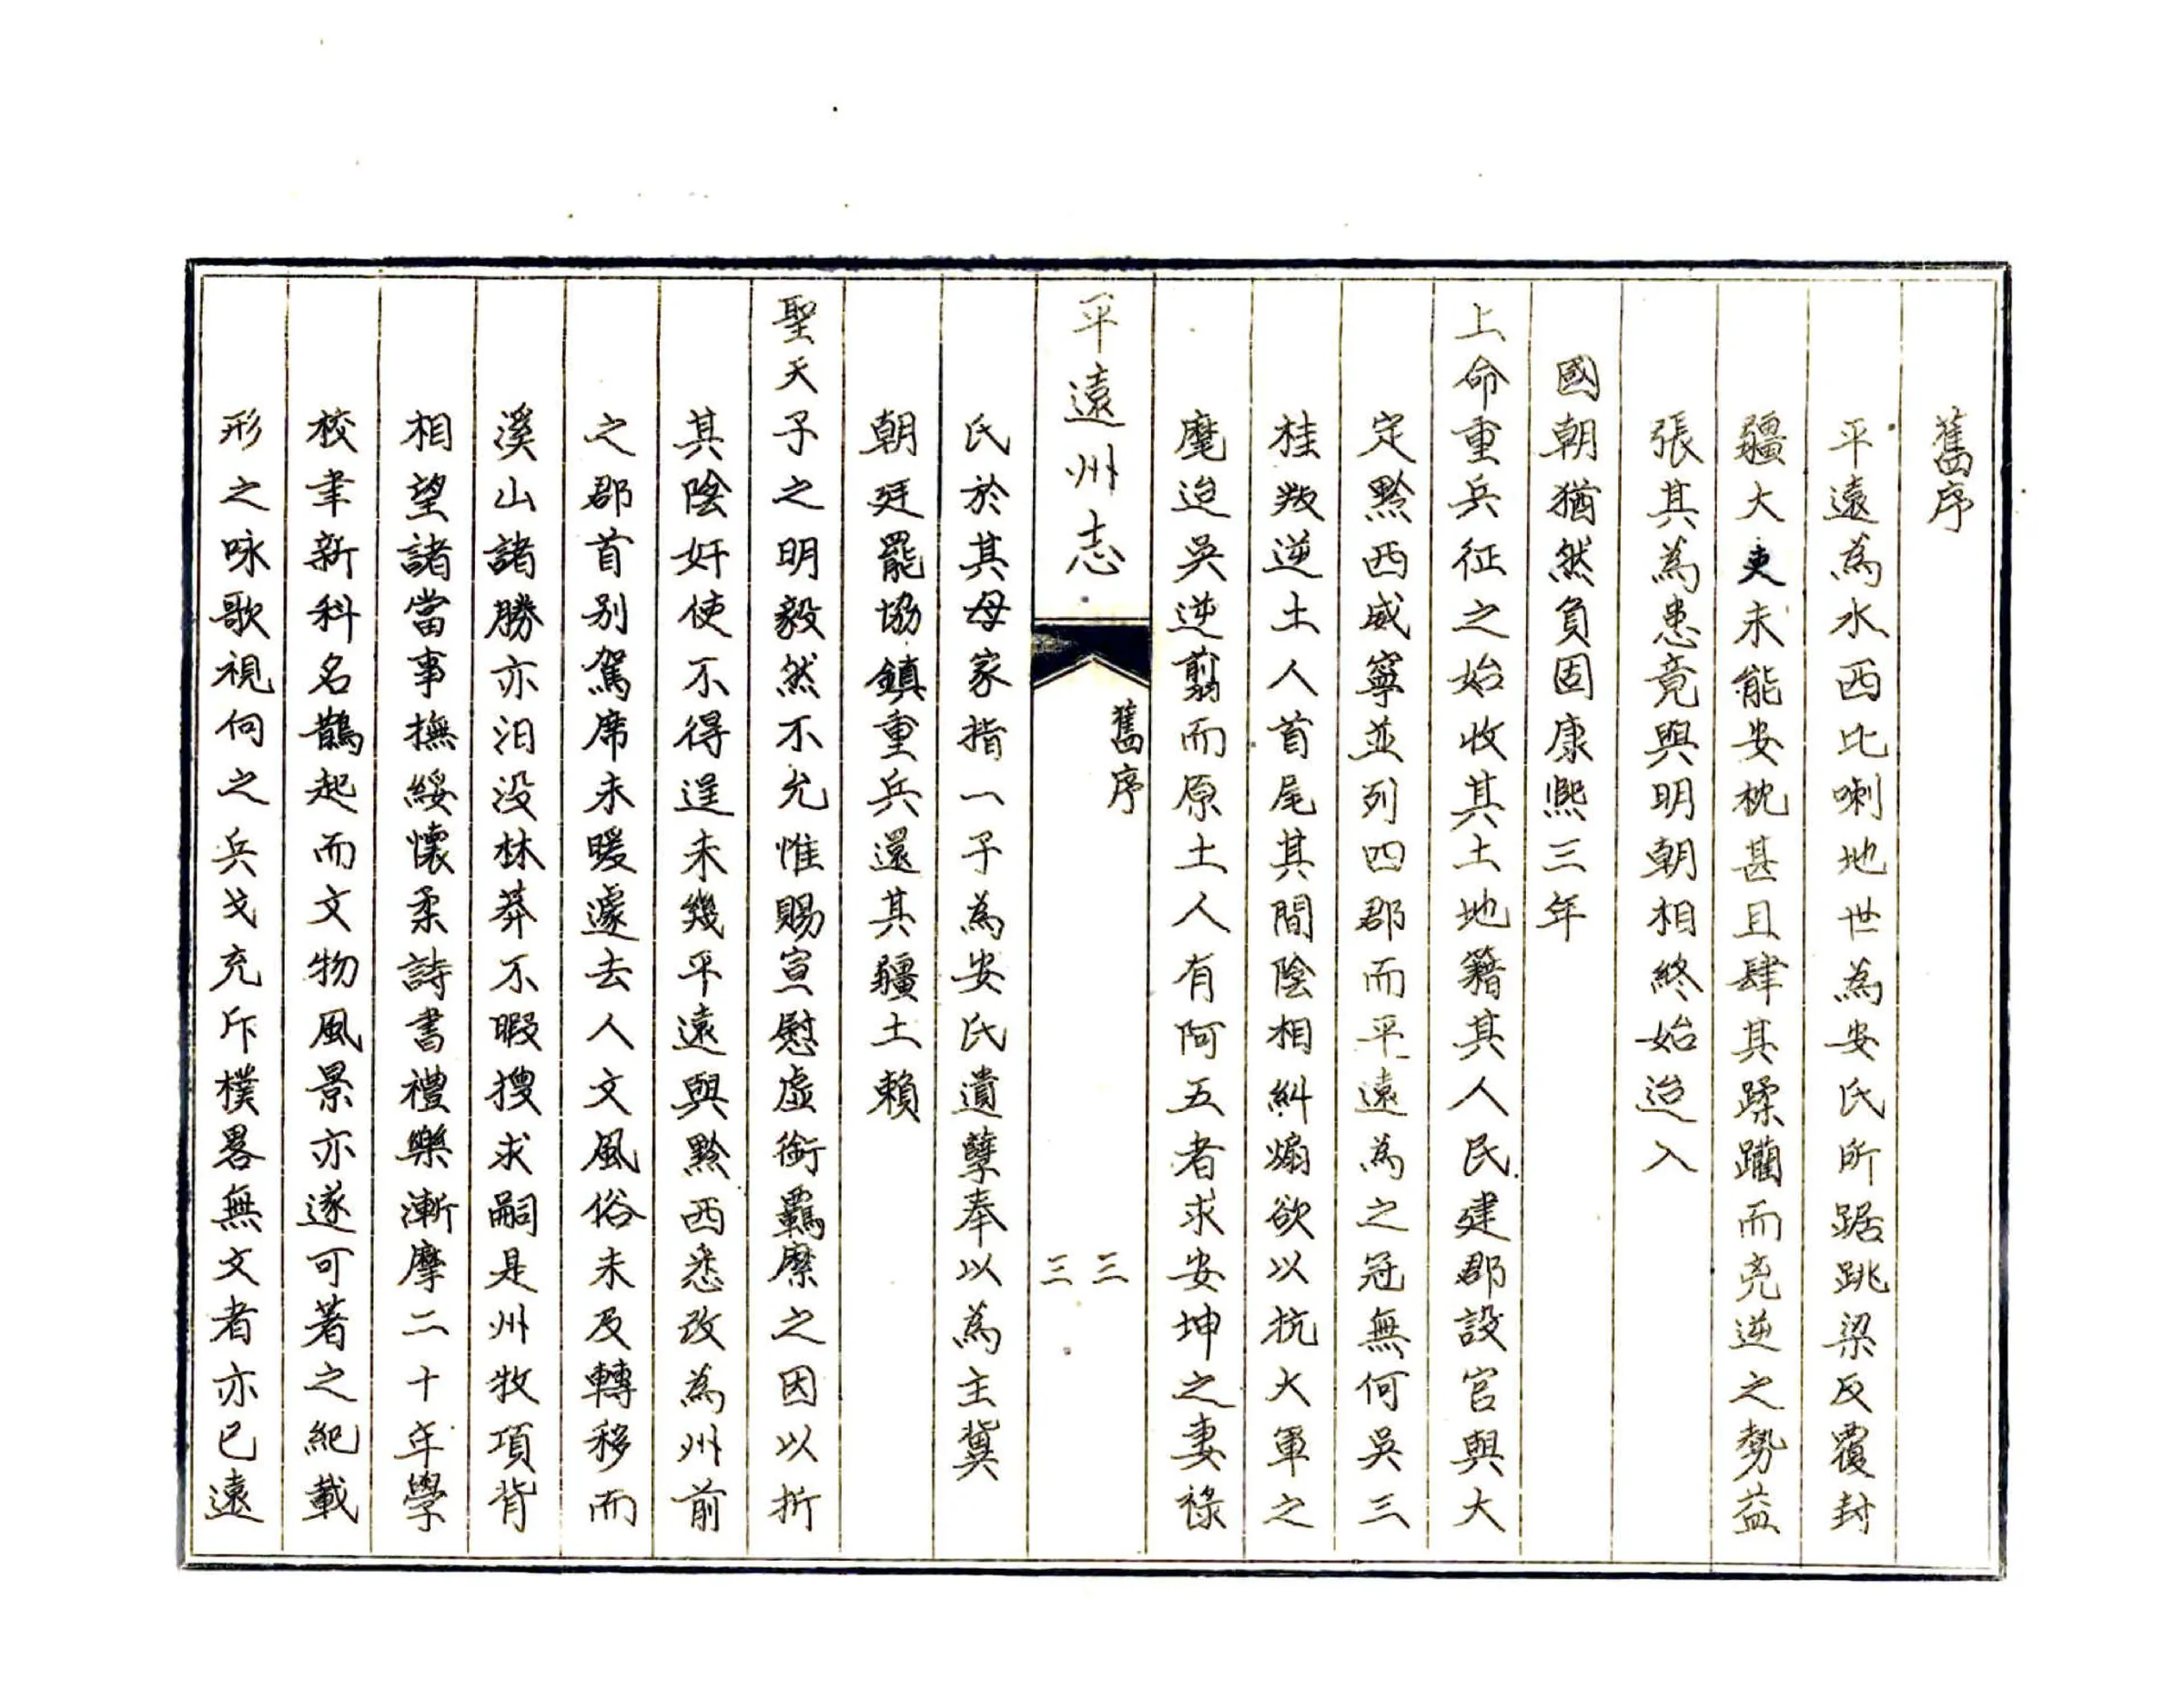 舊序
平遠為水西比喇地世為安氏所踞跳梁反覆封
疆大吏未能安枕甚且肆其蹂躪而兇逆之勢益
張其為患竟與明朝相終始迨入
國朝猶然負固康熙三年
上命重兵征之始收其土地籍其人民建郡設官與大
定黔西威寧並列四郡而平遠為之冠無何吳三
桂叛逆土人首尾其間陰相糾煽欲以抗大軍之
麾迨吳逆翦而原土人有阿五者求安坤之妻祿
平遠州志
舊序
三三
氏於其母家指一子為安氏遺孽奉以為主冀
朝廷罷協鎮重兵還其疆土賴
聖天子之明毅然不允惟賜宣慰虛銜羈縻之因以折
其陰奸使不得逞未幾平遠與黔西悉改為州前
之郡首別駕席未暖遽去人文風俗未及轉移而
溪山諸勝亦汨没林莽不暇搜求嗣是州牧項背
相望諸當事撫綏懷柔詩書禮樂漸摩二十年學
校聿新科名鵲起而文物風景亦遂可著之紀載
形之咏歌視向之兵戈充斥樸畧無文者亦已遠